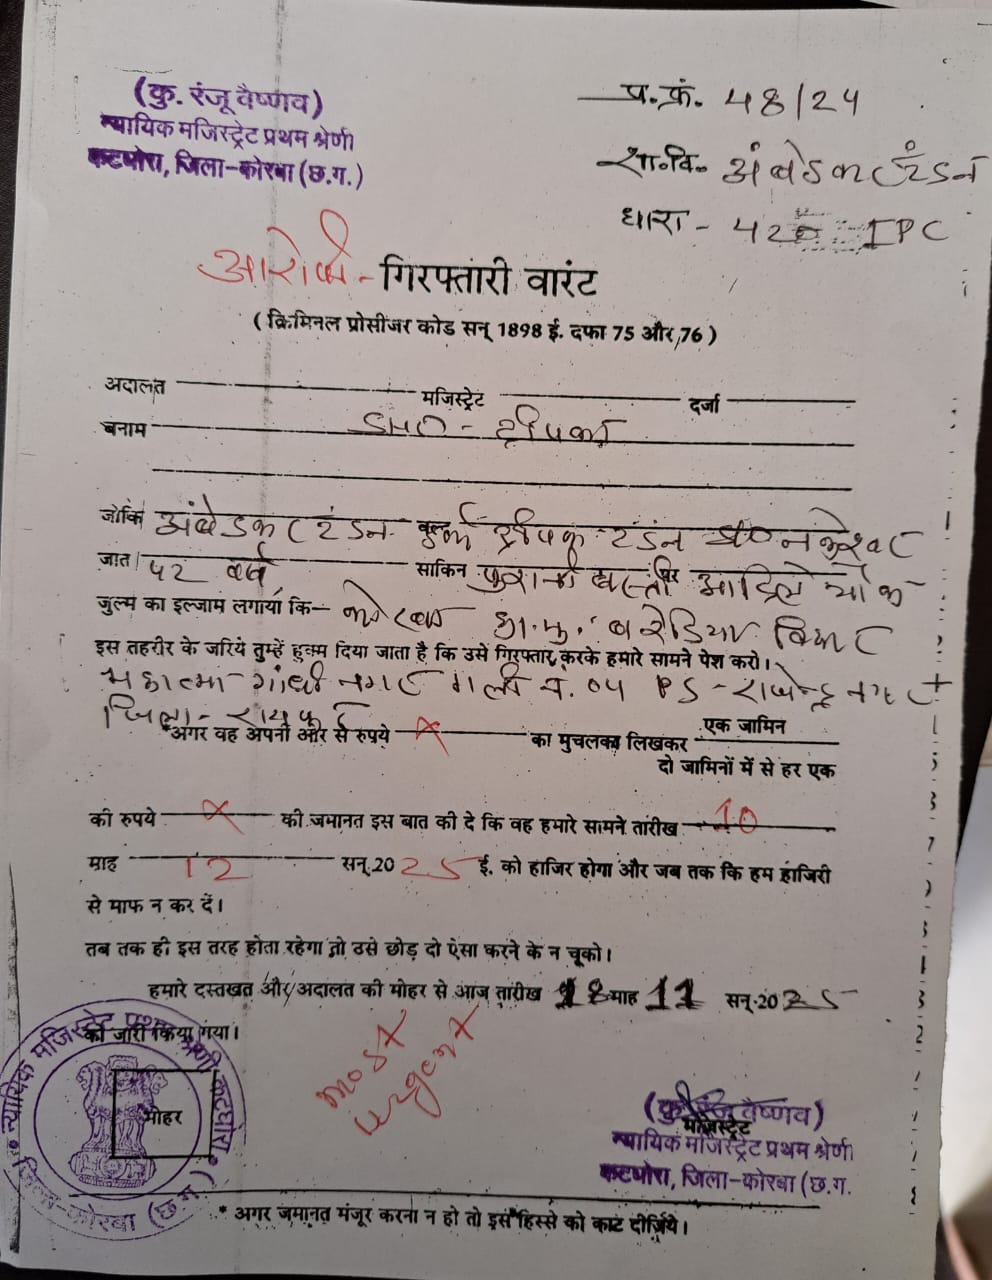 (कु. रंजू वैष्णव)
न्यायिक मजिस्ट्रेट प्रथम श्रेणी
कटघोरा, जिला-कोरबा (छ.ग.)
प्र.क्रं. 48/24
शा.वि. अंबेडकर टंडन
धारा - 420 IPC
आरोपी - गिरफ्तारी वारंट
( क्रिमिनल प्रोसीजर कोड सन् 1898 ई. दफा 75 और 76 )
अदालत मजिस्ट्रेट दर्जा
बनाम SHO - दीपका
जोकि अंबेडकर टंडन वल्द टंडन
जात 42 वर्ष साकिन पुरानी बस्ती चौक
जुल्म का इल्जाम लगाया कि- कोरबा
इस तहरीर के जरिये तुम्हें हुक्म दिया जाता है कि उसे गिरफ्तार करके हमारे सामने पेश करो।
महात्मा गांधी नगर गली नं. 04 PS - राजेन्द्र नगर
जिला - रायपुर
*अगर वह अपनी ओर से रुपये X का मुचलका लिखकर एक जामिन
दो जामिनों में से हर एक
की रुपये X की जमानत इस बात की दे कि वह हमारे सामने तारीख 10
माह 12 सन्.2025 ई. को हाजिर होगा और जब तक कि हम हाजिरी
से माफ न कर दें।
तब तक ही इस तरह होता रहेगा तो उसे छोड़ दो ऐसा करने के न चूको।
हमारे दस्तखत और अदालत की मोहर से आज तारीख 18 माह 11 सन्.2025
को जारी किया गया।
most
urgent
मोहर
न्यायिक मजिस्ट्रेट प्रथम श्रेणी कटघोरा
जिला-कोरबा (छ.ग.)
(कु. रंजू वैष्णव)
मजिस्ट्रेट
न्यायिक मजिस्ट्रेट प्रथम श्रेणी
कटघोरा, जिला-कोरबा (छ.ग.
* अगर जमानत मंजूर करना न हो तो इस हिस्से को काट दीजिये।